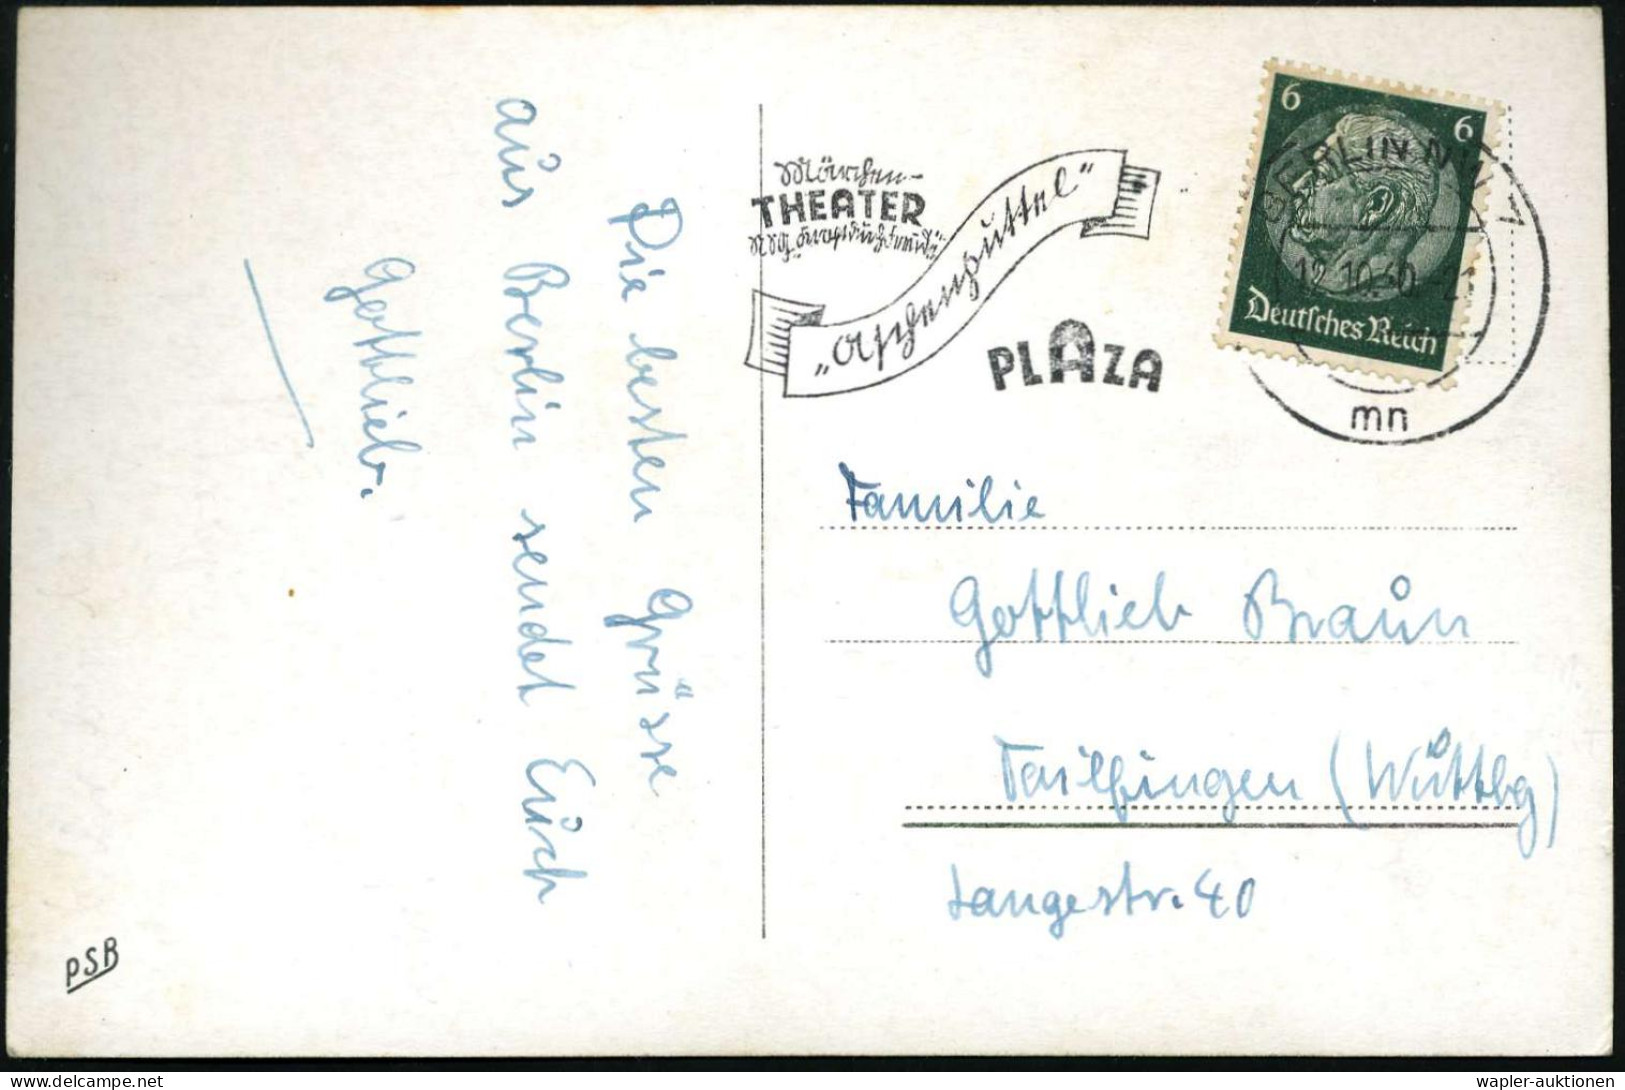 Die besten Grüsse
aus Berlin sendet Euch
Gottlieb.
PSB
Märchen-
THEATER
„Aschenputtel"
PLAZA
6 6
Deutsches Reich
BERLIN NW 7
12.10.40.-21
mn
Familie
Gottlieb Braun
Tailfingen (Württbg)
Langestr. 40
wapler-auktionen